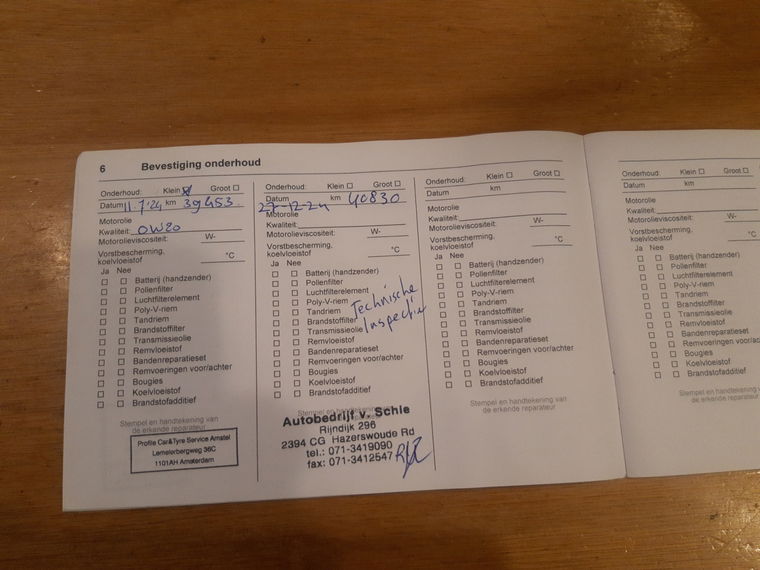 6 Bevestiging onderhoud
Onderhoud: Klein Groot
Datum 11.7'24 km 39453
Motorolie
Kwaliteit: 0W20
Motorolieviscositeit: W-
Vorstbescherming, koelvloeistof °C
Ja Nee
Batterij (handzender)
Pollenfilter
Luchtfilterelement
Poly-V-riem
Tandriem
Brandstoffilter
Transmissieolie
Remvloeistof
Bandenreparatieset
Remvoeringen voor/achter
Bougies
Koelvloeistof
Brandstofadditief
Stempel en handtekening van
de erkende reparateur
Profile Car&Tyre Service Amstel
Lemelerbergweg 36C
1101AH Amsterdam
Onderhoud: Klein Groot
Datum km 40830
27-12-24
Motorolie
Kwaliteit:
Motorolieviscositeit: W-
Vorstbescherming,
koelvloeistof °C
Ja Nee
Batterij (handzender)
Pollenfilter
Luchtfilterelement
Poly-V-riem
Tandriem
Brandstoffilter
Transmissieolie
Remvloeistof
Bandenreparatieset
Remvoeringen voor/achter
Bougies
Koelvloeistof
Brandstofadditief
Technische
Inspectie
Stempel en handtekening van
Autobedrijf v. Schie
Rijndijk 296
2394 CG Hazerswoude Rd
tel.: 071-3419090
fax: 071-3412547
Onderhoud: Klein Groot
Datum km
Motorolie
Kwaliteit:
Motorolieviscositeit: W-
Vorstbescherming,
koelvloeistof °C
Ja Nee
Batterij (handzender)
Pollenfilter
Luchtfilterelement
Poly-V-riem
Tandriem
Brandstoffilter
Transmissieolie
Remvloeistof
Bandenreparatieset
Remvoeringen voor/achter
Bougies
Koelvloeistof
Brandstofadditief
Stempel en handtekening van
de erkende reparateur
Onderhoud: Klein
Datum km
Motorolie
Kwaliteit:
Motorolieviscositeit: W-
Vorstbescherming,
koelvloeistof
Ja Nee
Batterij (handzender)
Pollenfilter
Luchtfilterelement
Poly-V-riem
Tandriem
Brandstoffilter
Transmissieolie
Remvloeistof
Bandenreparatieset
Remvoeringen voor/achter
Bougies
Koelvloeistof
Brandstofadditief
Stempel en handtekening van
de erkende reparateur